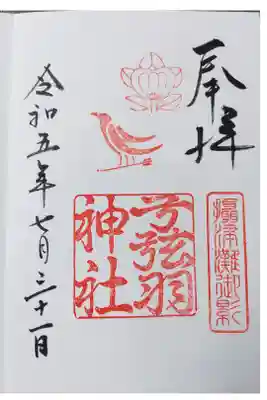 奉拝
攝津灘御影
弓弦羽
神社
令和五年七月三十一日